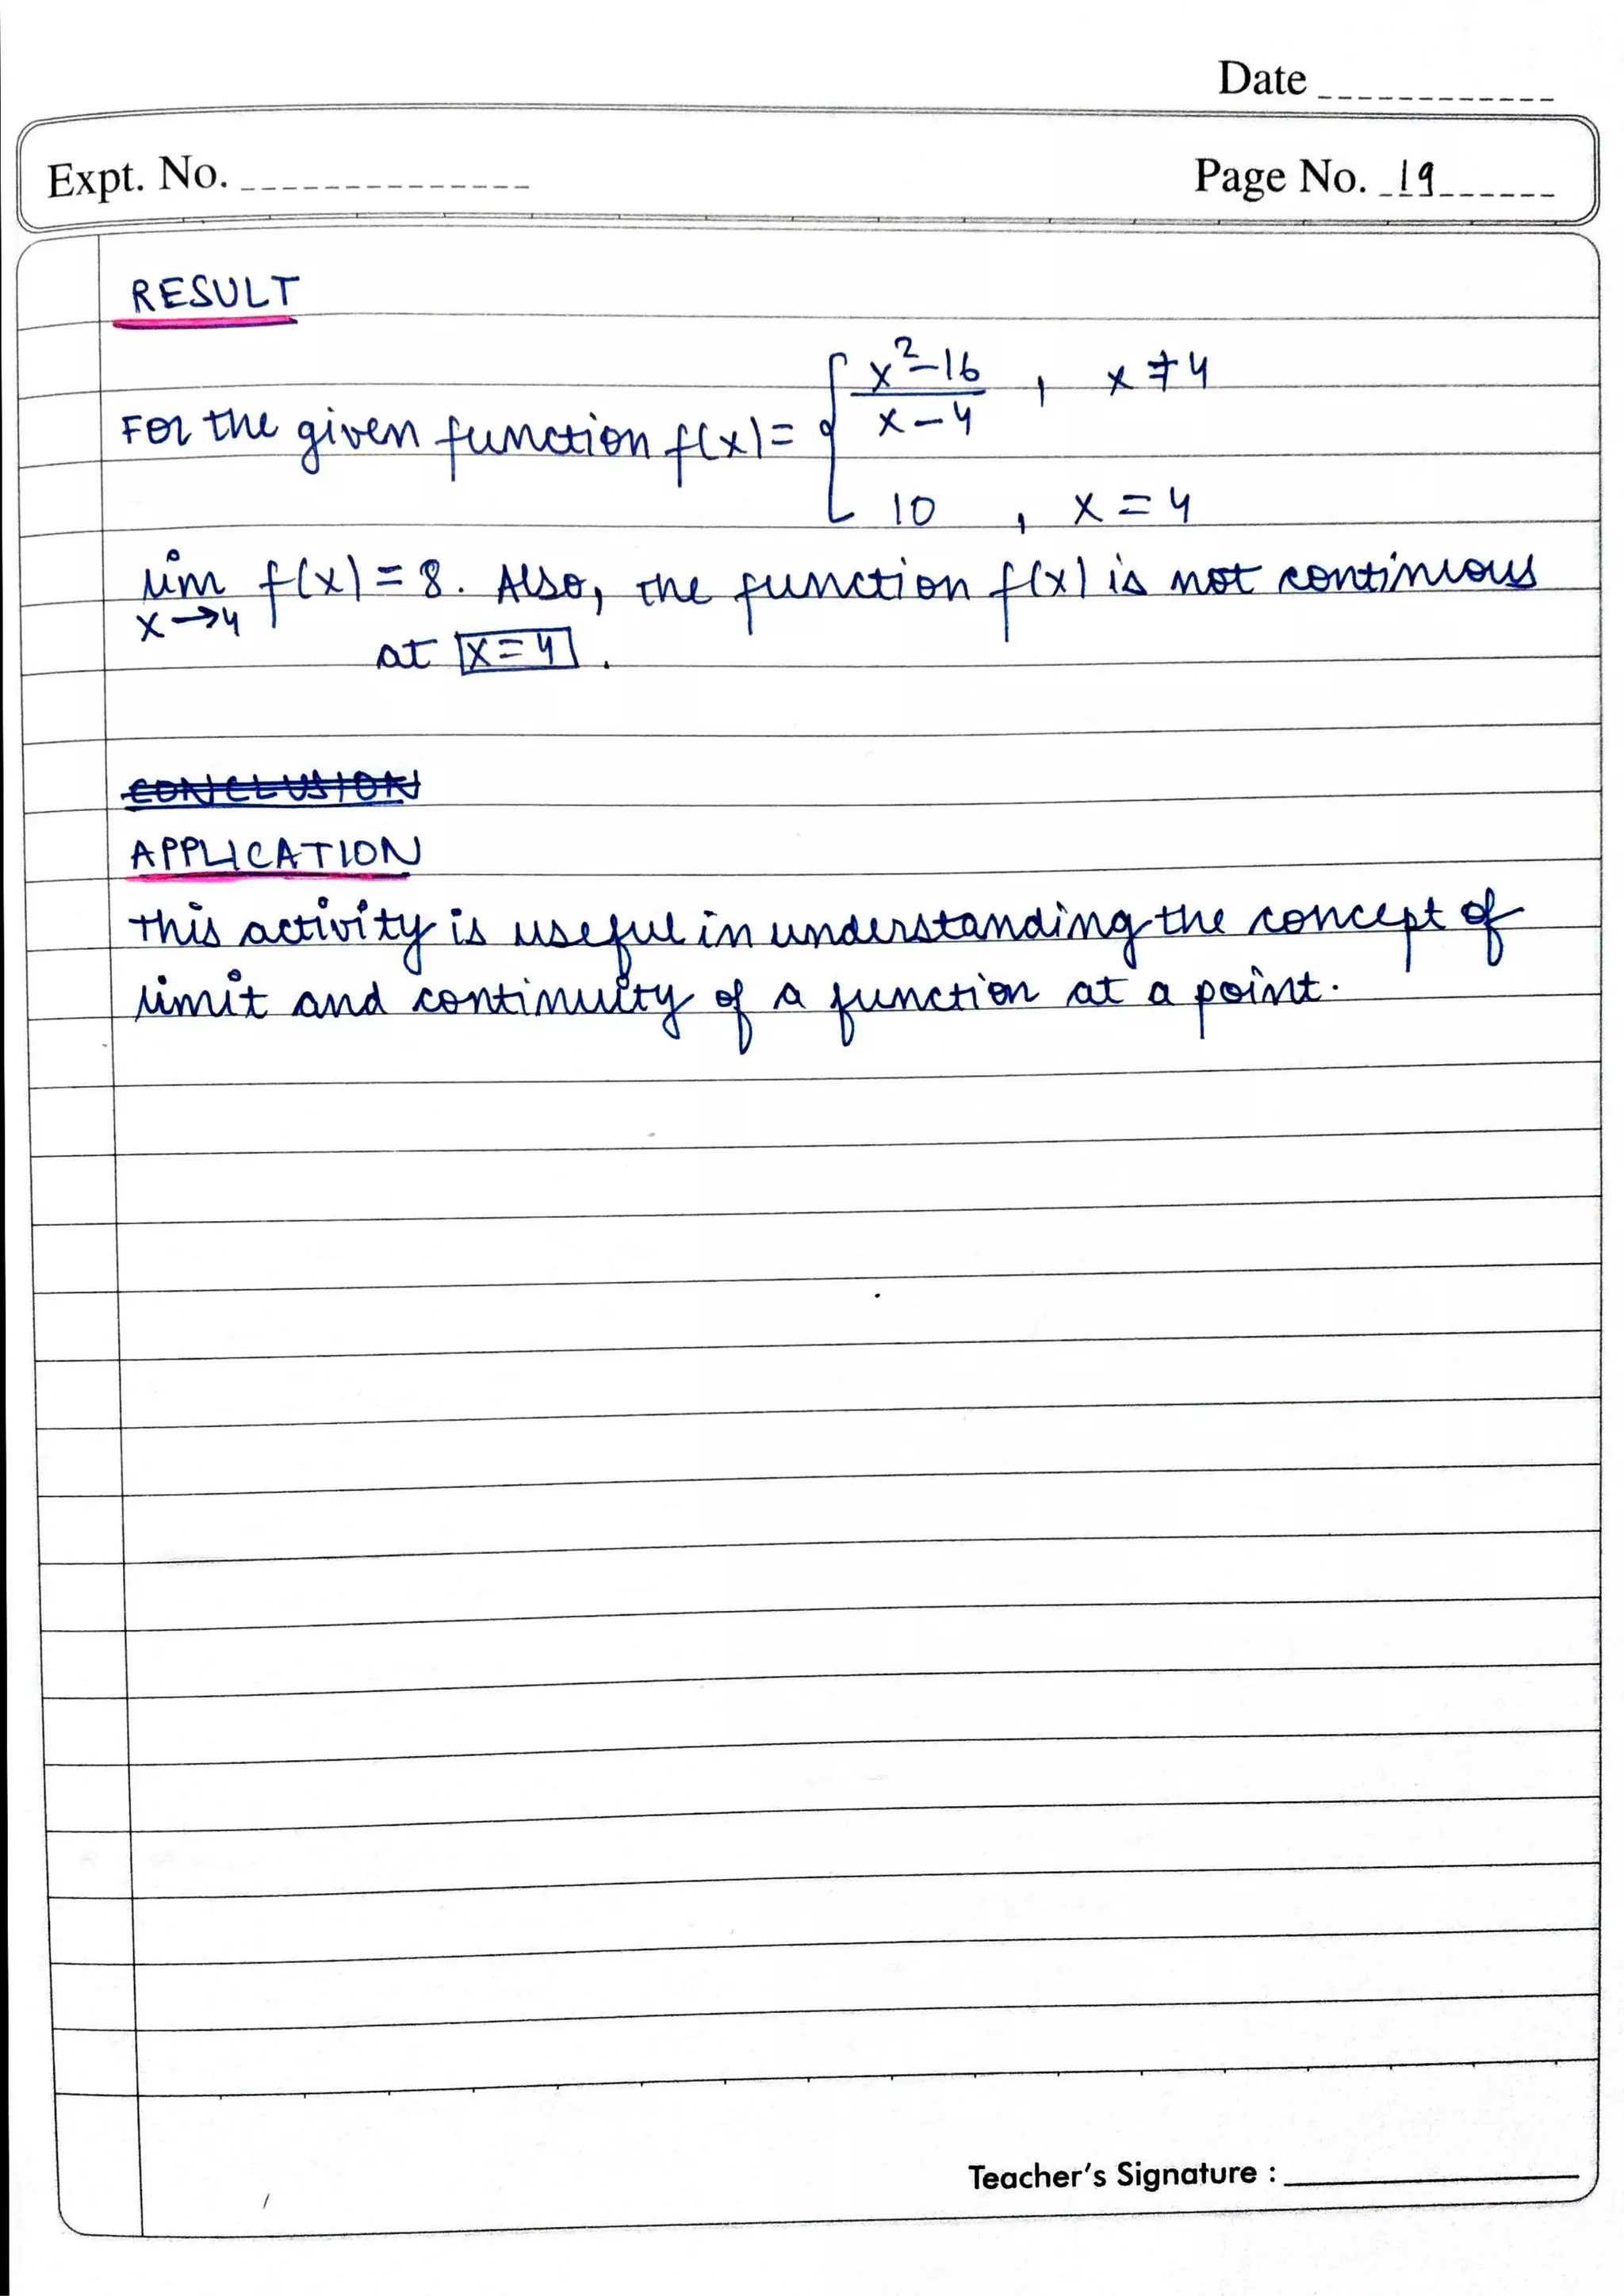 Date
Expt. No.
Page No. 19
RESULT
For the given function f(x) = { x²-16 / x-4 , x ≠ 4
10 , x = 4
lim x→4 f(x) = 8. Also, the function f(x) is not continious
at x=4 .
CONCLUSION
APPLICATION
This activity is useful in understanding the concept of
limit and continuity of a function at a point.
Teacher's Signature :